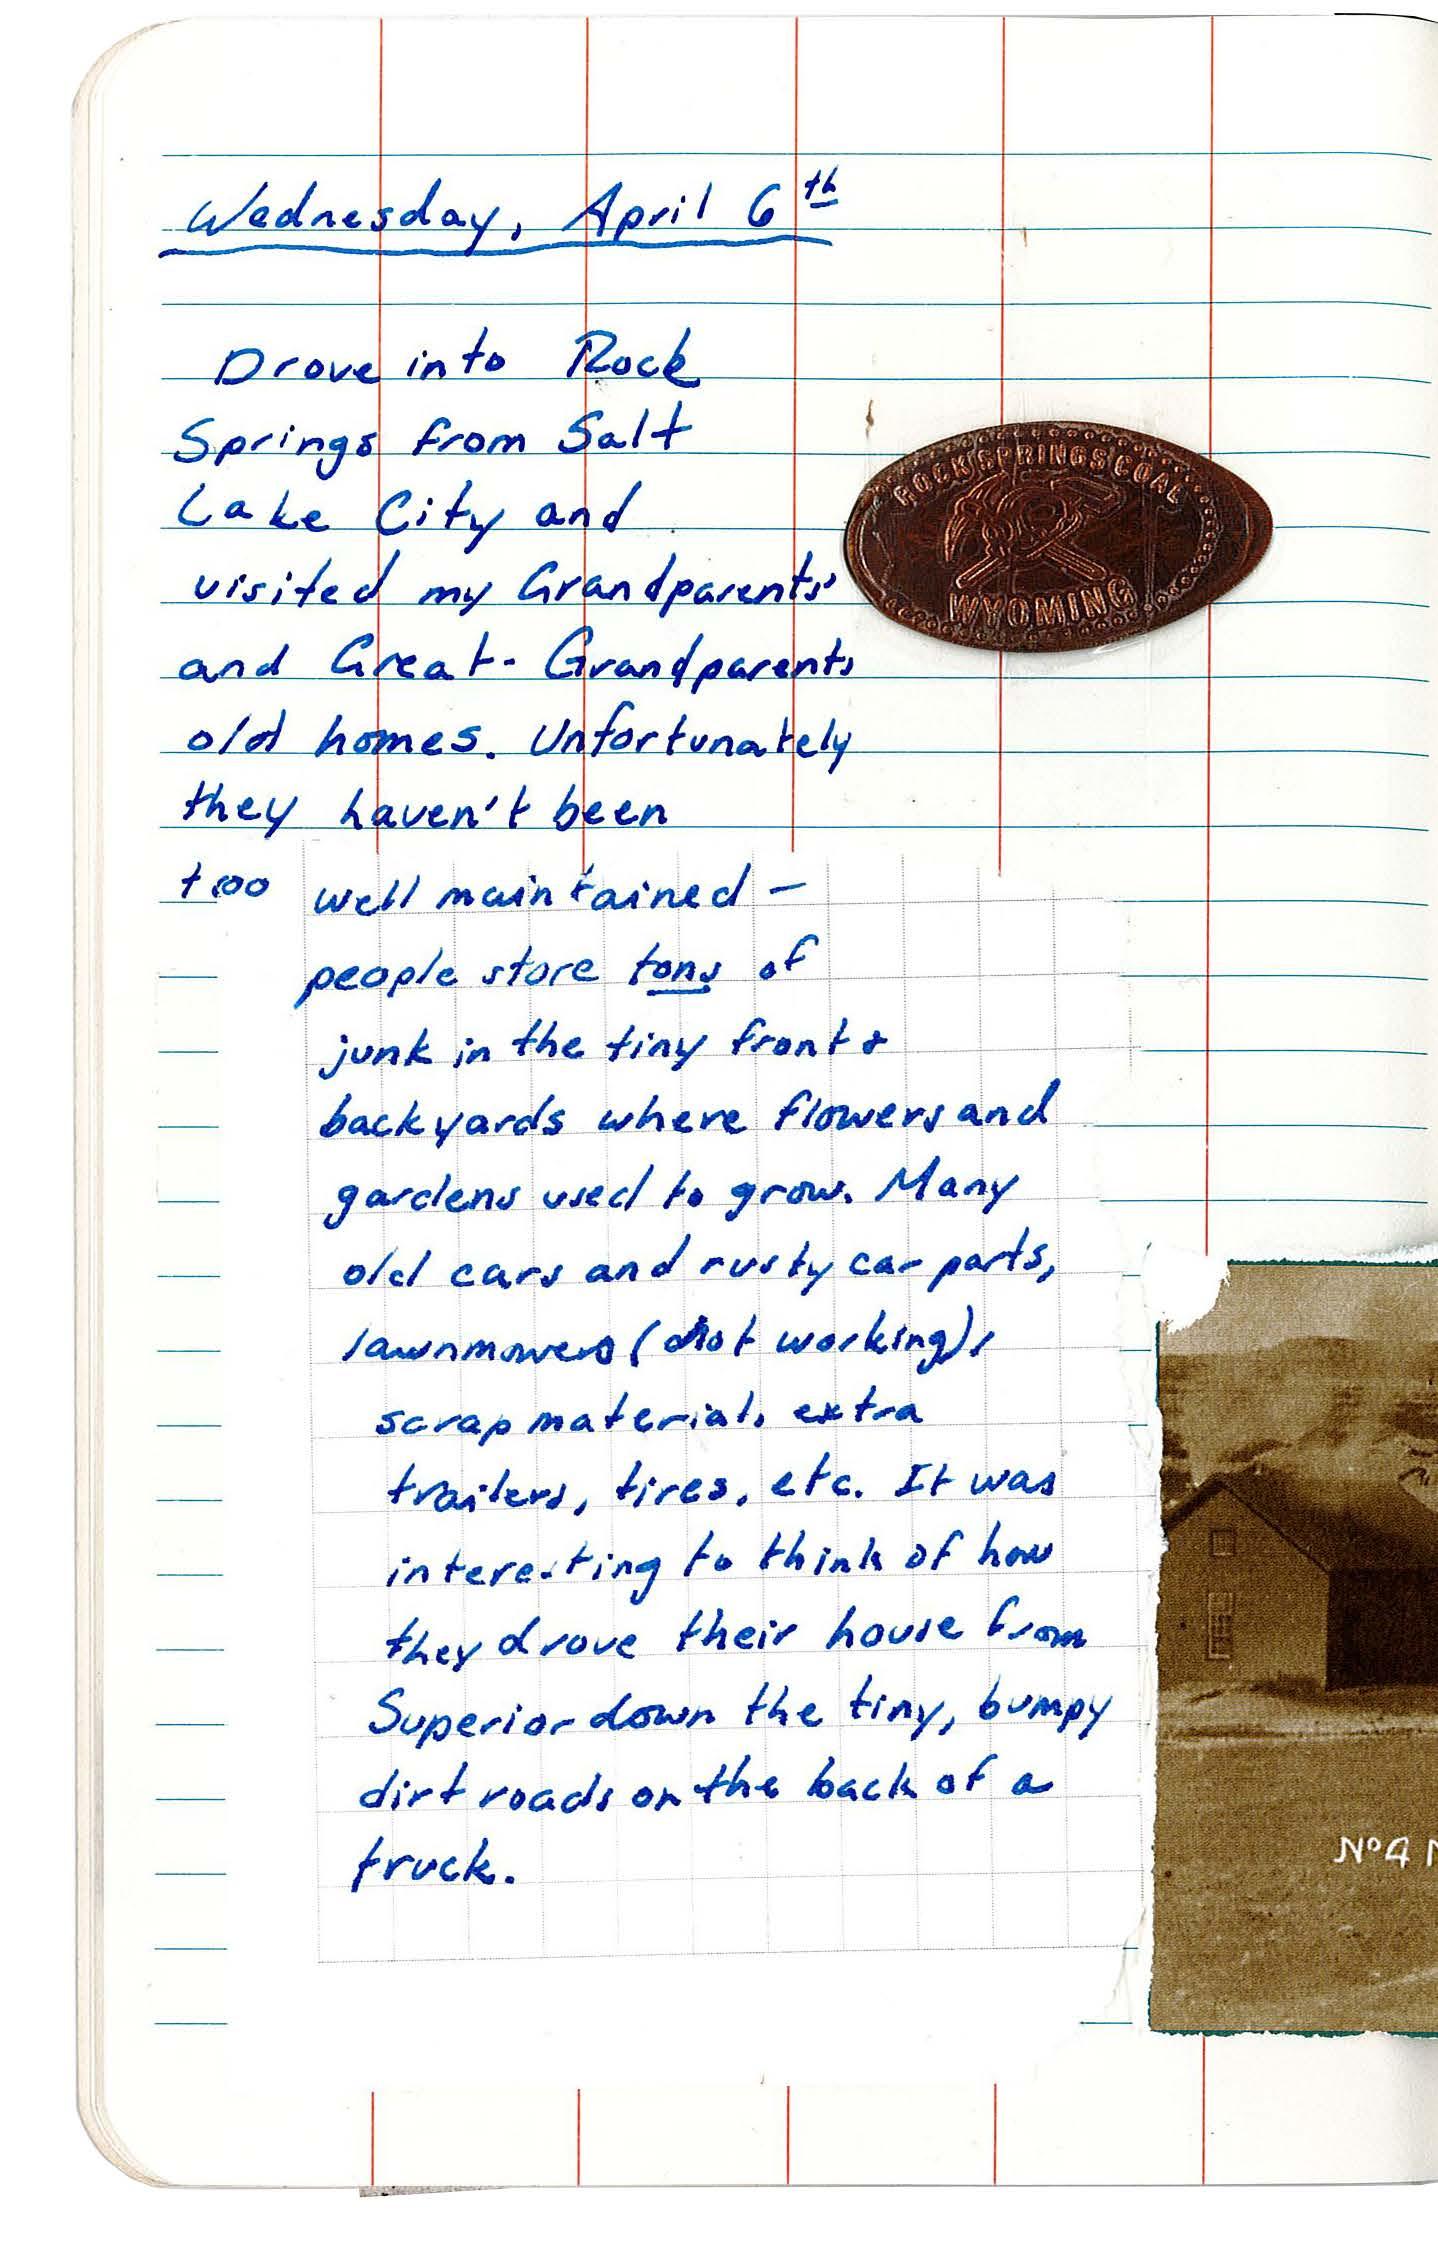 Wednesday, April 6th
Drove into Rock
Springs from Salt
Lake City and
visited my Grandparents'
and Great-Grandparents
old homes. Unfortunately
they haven't been
too well maintained –
people store tons of
junk in the tiny front &
backyards where flowers and
gardens used to grow. Many
old cars and rusty car parts,
lawnmowers (not working),
scrap material, extra
trailers, tires, etc. It was
interesting to think of how
they drove their house from
Superior down the tiny, bumpy
dirt roads on the back of a
truck.
ROCK SPRINGS COAL
WYOMING
Nº4